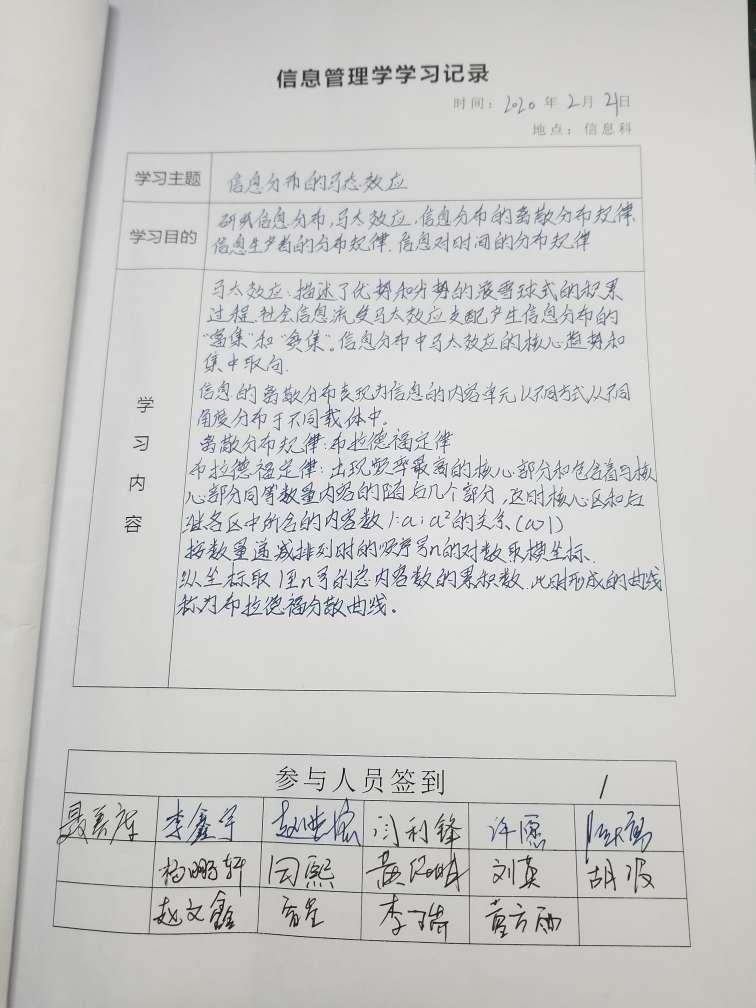 信息管理学学习记录
时间：2020 年 2 月 21 日
地点：信息科
学习主题
信息分布的马太效应
学习目的
研究信息分布,马太效应,信息分布的离散分布规律、
信息生产者的分布规律.信息对时间的分布规律
学习内容
马太效应:描述了优势和劣势的滚雪球式的积累
过程.社会信息流受马太效应支配产生信息分布的
"富集"和"贫集"。信息分布中马太效应的核心趋势和
集中取向.
信息的离散分布表现为信息的内容单元以不同方式从不同
角度分布于不同载体中。
离散分布规律:布拉德福定律
布拉德福定律:出现频率最高的核心部分和包含着与核
心部分同等数量内容的随后几个部分,这时核心区和后
继各区中所含的内容数1:a:a²的关系(a>1)
按数量递减排列时的顺序号n的对数取横坐标.
纵坐标取1至n号的总内容数的累积数.此时形成的曲线
称为布拉德福分散曲线。
参与人员签到 1
李鑫宇 闫利锋 许愿
杨鹏轩 田熙 刘英
赵文鑫 李